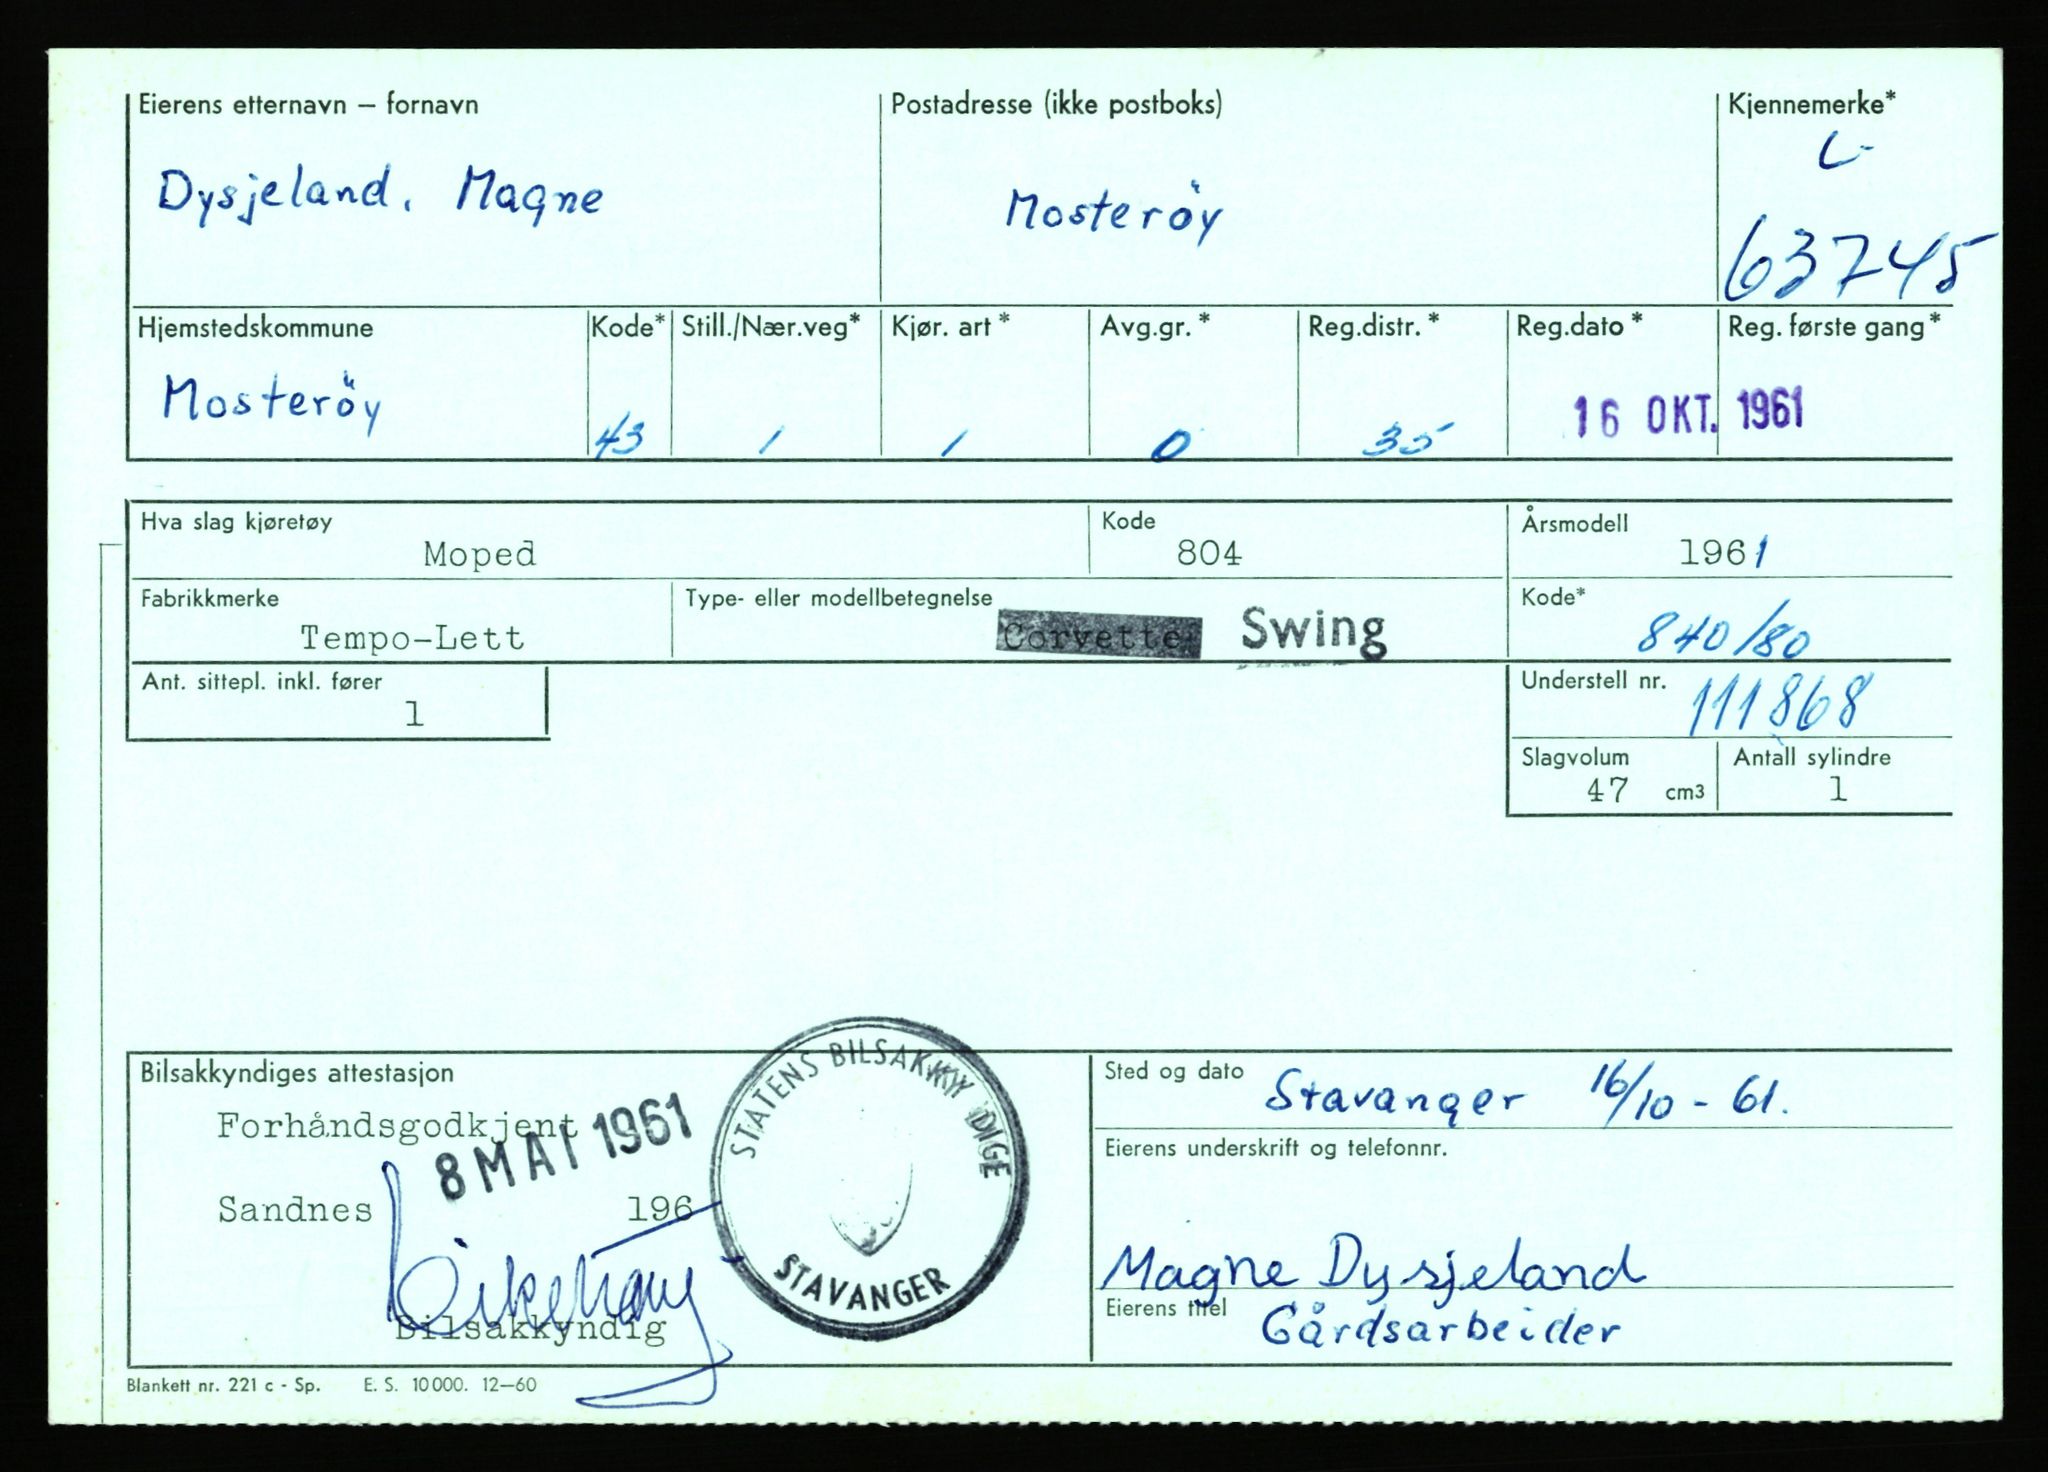 Eierens etternavn – fornavn
Dysjeland, Magne
Postadresse (ikke postboks)
Mosteröy
Kjennemerke*
L-
63745
Hjemstedskommune
Mosteröy
Kode*
43
Still./Nær.veg*
1
Kjør. art *
1
Avg.gr. *
0
Reg.distr. *
35
Reg.dato *
Reg. første gang*
16 OKT. 1961
Hva slag kjøretøy
Moped
Kode
804
Årsmodell
1961
Fabrikkmerke
Tempo-Lett
Type- eller modellbetegnelse
Corvette Swing
Kode*
840/80
Ant. sittepl. inkl. fører
1
Understell nr.
111868
Slagvolum
47 cm3
Antall sylindre
1
Bilsakkyndiges attestasjon
Forhåndsgodkjent
8 MAI 1961
Sandnes 196
Bilsakkyndig
STATENS BILSAKKYNDIGE
STAVANGER
Sted og dato
Stavanger 16/10 - 61.
Eierens underskrift og telefonnr.
Magne Dysjeland
Eierens titel
Gårdsarbeider
Blankett nr. 221 c - Sp. E. S. 10000. 12—60